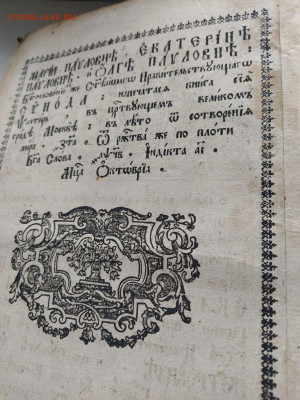 МАРІИ ПАѴЛОВНѢ, ЕКАТЕРІНѢ
ПАѴЛОВНѢ, и ОЛГѢ ПАѴЛОВНѢ,
Бл҃гословенїемъ же Ст҃ѣйшагѡ Правителствующагѡ
СѴНОДА: напечатася книга сїѧ
Ѱалтирь, въ царствующемъ великомъ
градѣ Москвѣ: въ лѣто ѿ сотворенїѧ
мира ҂зт҃а. Ѿ рж҃тва же по плоти
Бг҃а Слова ҂аѱч҃в. Індікта а҃і
Мц҃а Октѡврїа